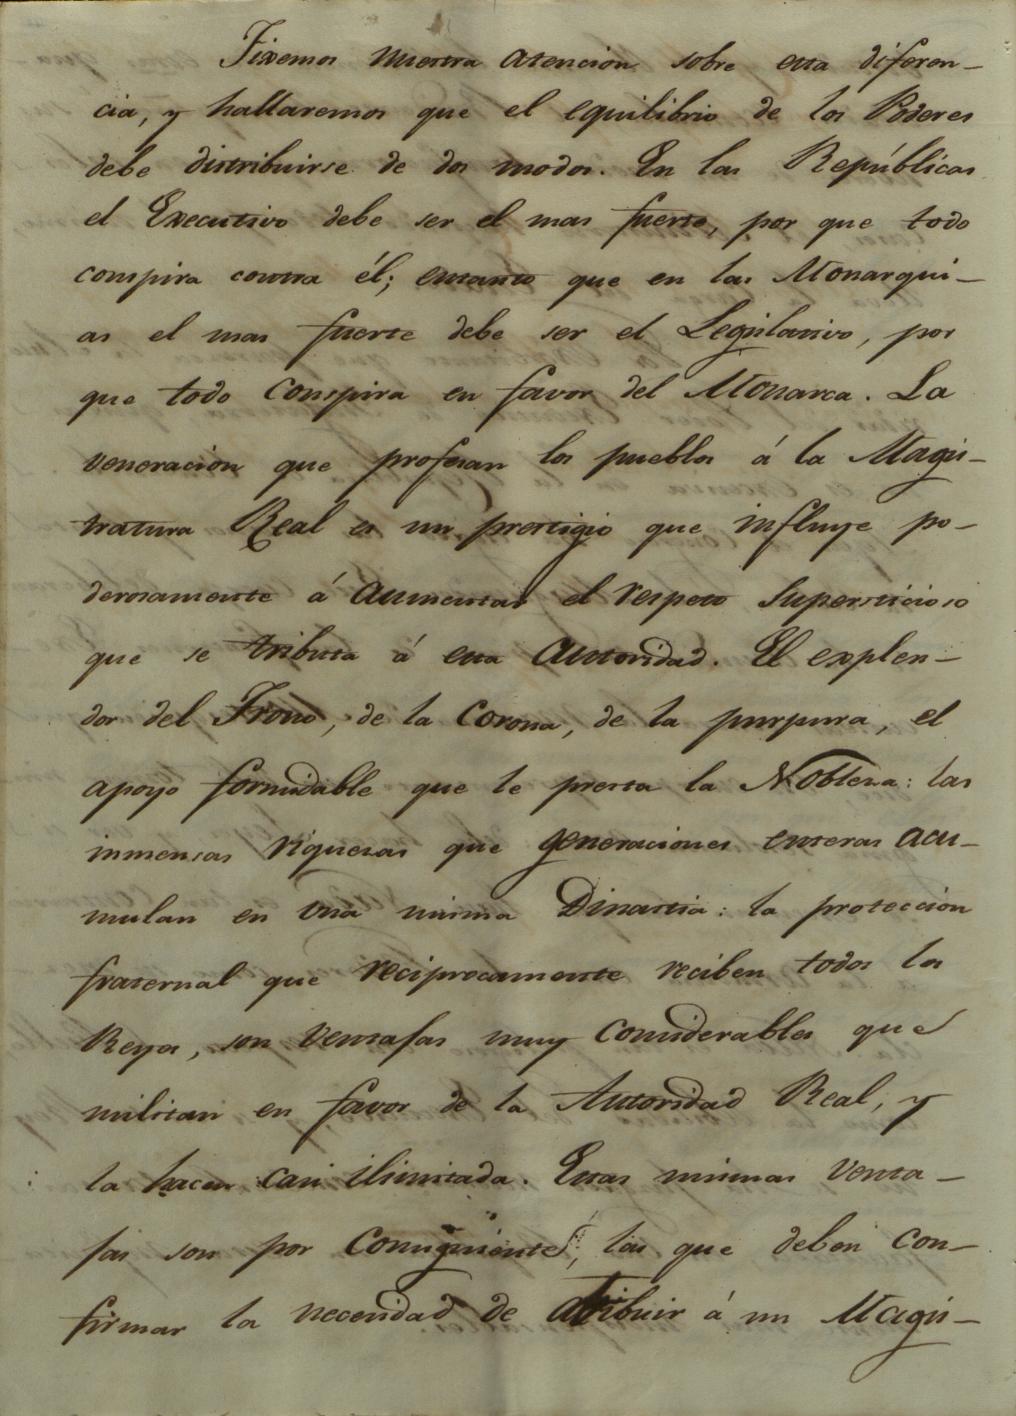 Fixemos nuestra atencion sobre esta diferen-
cia, y hallaremos que el equilibrio de los Poderes
debe distribuirse de dos modos. En las Repúblicas
el Executivo debe ser el mas fuerte, por que todo
conspira contra él; entanto que en las Monarqui-
as el mas fuerte debe ser el Legislativo, por
que todo conspira en favor del Monarca. La
veneracion que profesan los pueblos á la Magis-
tratura Real es un prestigio que influye po-
derosamente á aumentar el respeto supersticioso
que se tributa á esta Autoridad. El explen-
dor del Trono, de la Corona, de la purpura, el
apoyo formidable que le presta la Noblesa: las
inmensas riquesas que generaciones enteras acu-
mulan en una misma Dinastia: la proteccion
fraternal que reciprocamente reciben todos los
Reyes, son ventajas muy considerables que
militan en favor de la Autoridad Real, y
la hacen casi ilimitada. Estas mismas venta-
jas son por consiguiente, las que deben con-
firmar la necesidad de atribuir á un Magis-